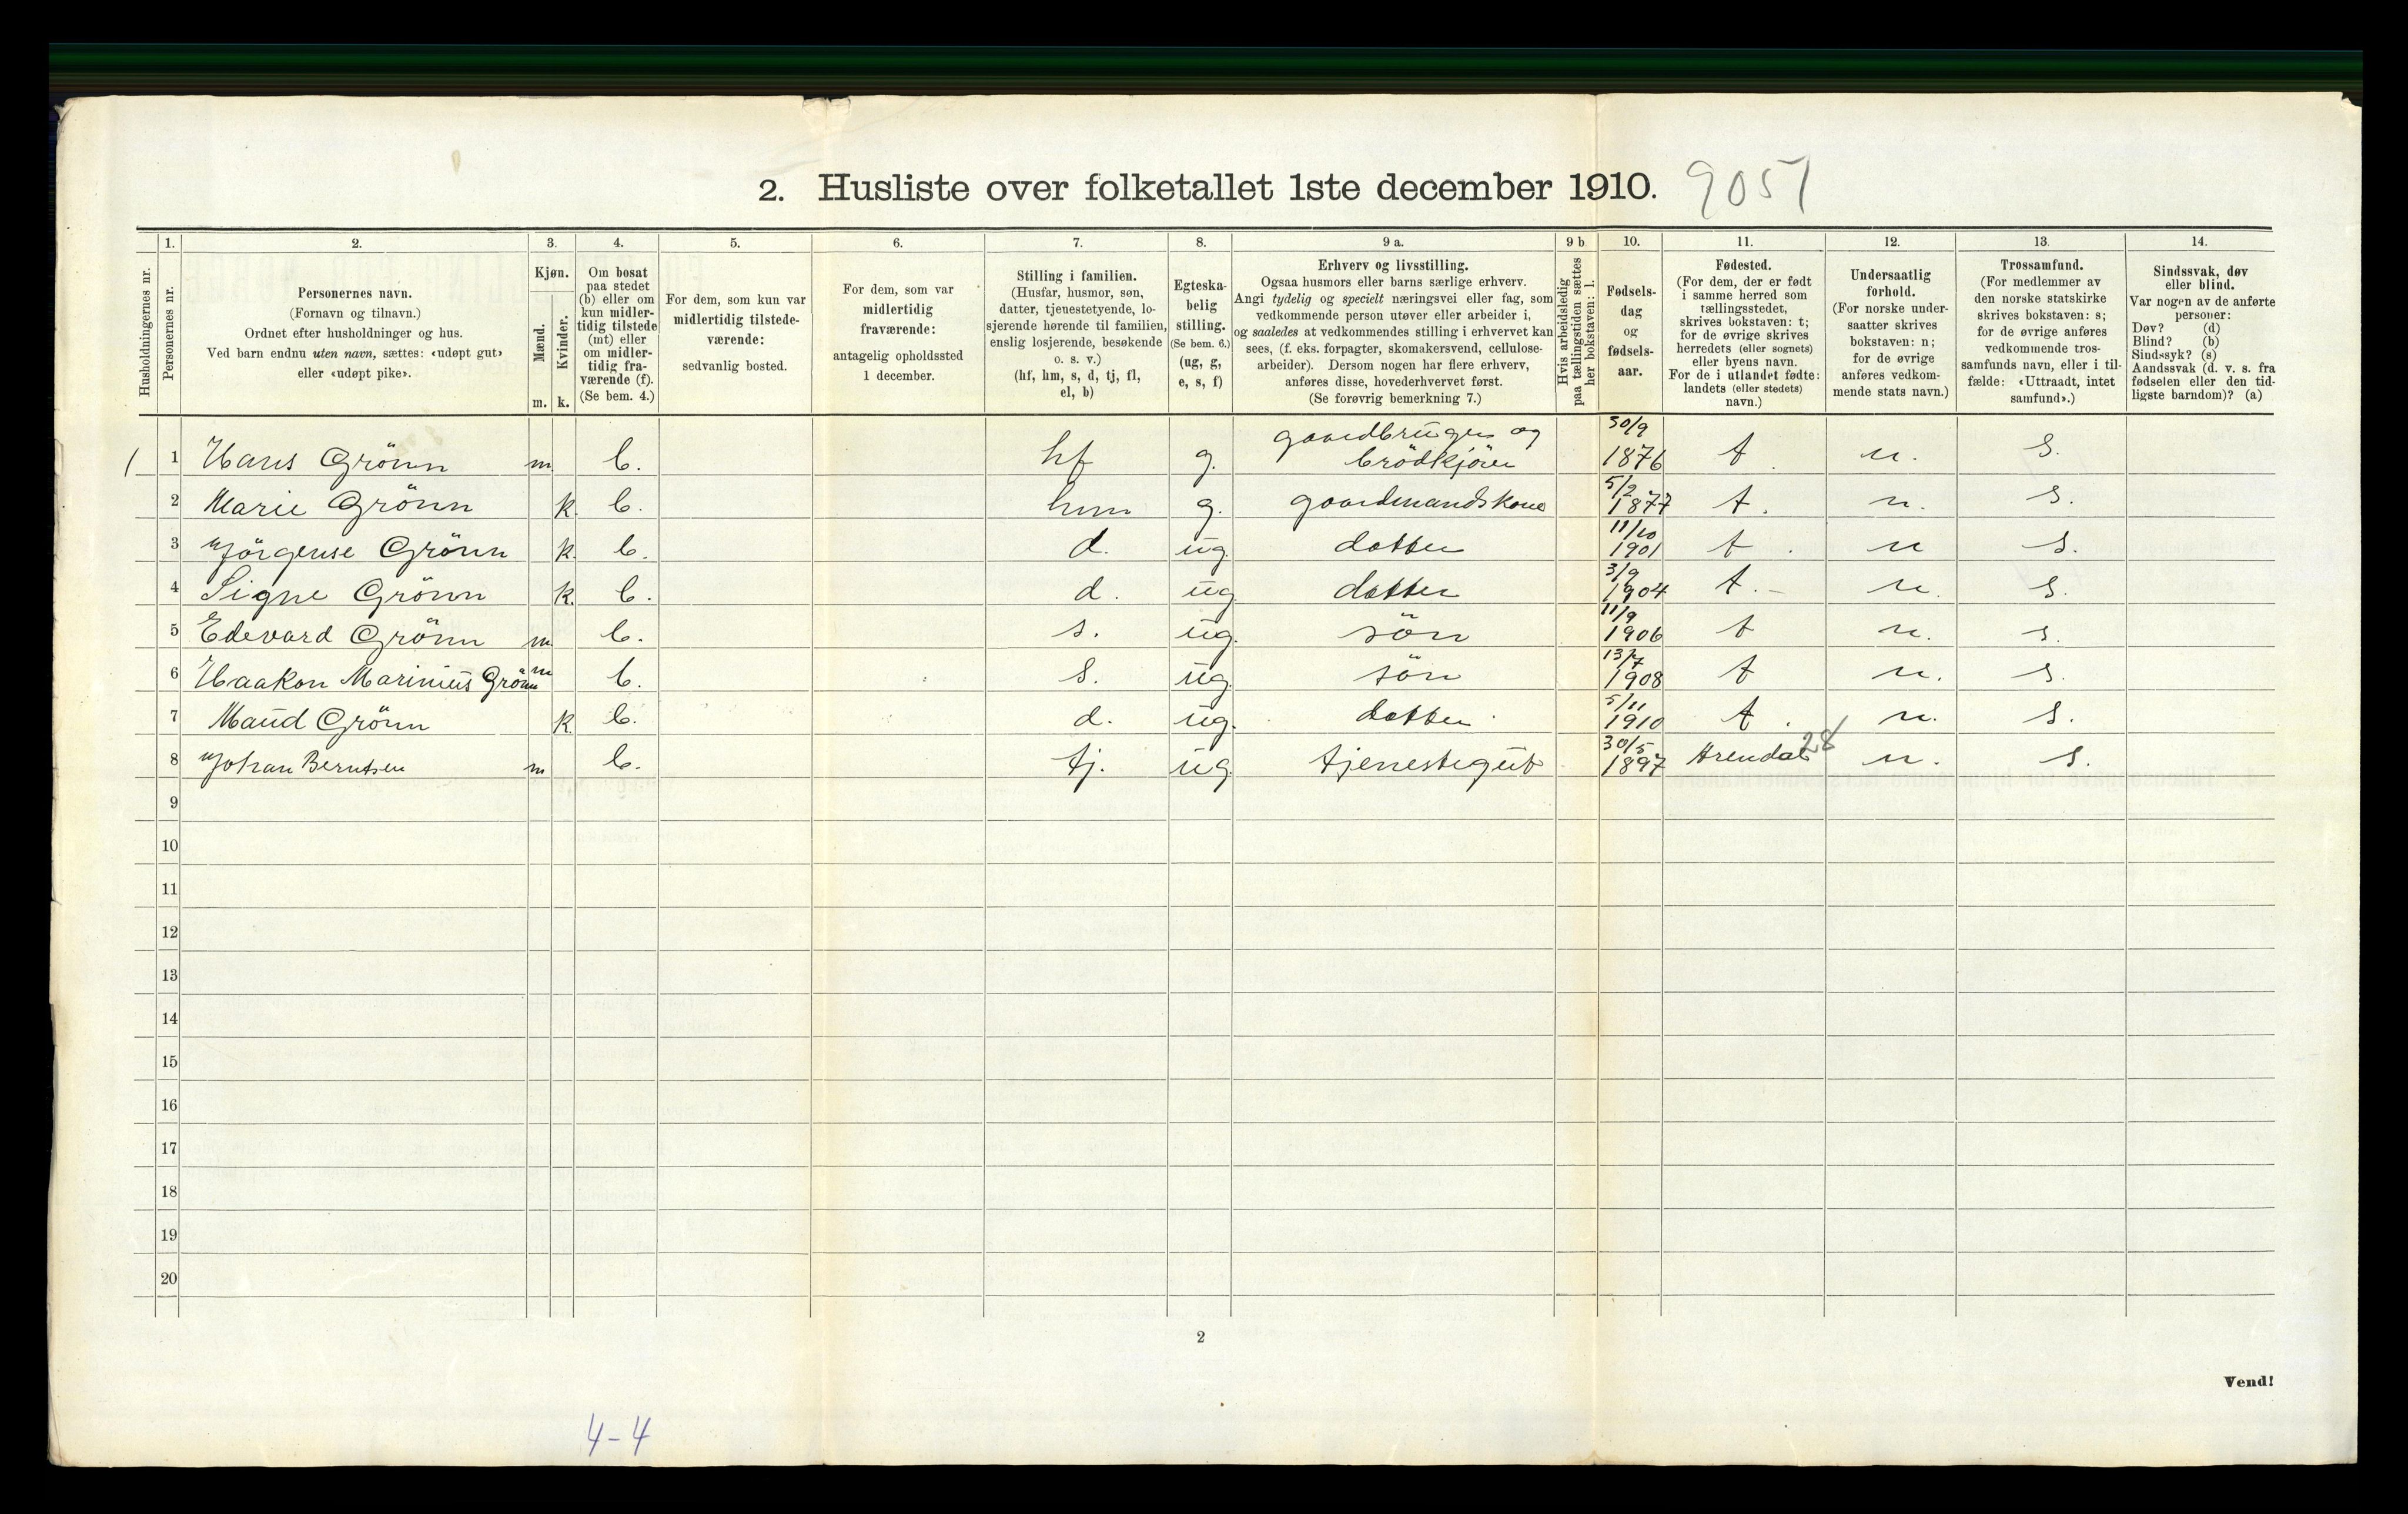 2. Husliste over folketallet 1ste december 1910. 9051
1. 2. 3. 4. 5. 6. 7. 8. 9 a. 9 b 10. 11. 12. 13. 14.
Husholdningernes nr.
Personernes nr.
Personernes navn.
(Fornavn og tilnavn.)
Ordnet efter husholdninger og hus.
Ved barn endnu uten navn, sættes: «udøpt gut»
eller «udøpt pike».
Kjøn.
Mænd.
Kvinder.
m. k.
Om bosat
paa stedet
(b) eller om
kun midler-
tidig tilstede
(mt) eller
om midler-
tidig fra-
værende (f).
(Se bem. 4.)
For dem, som kun var
midlertidig tilstede-
værende:
sedvanlig bosted.
For dem, som var
midlertidig
fraværende:
antagelig opholdssted
1 december.
Stilling i familien.
(Husfar, husmor, søn,
datter, tjenestetyende, lo-
sjerende hørende til familien,
enslig losjerende, besøkende
o. s. v.)
(hf, hm, s, d, tj, fl,
el, b)
Egteska-
belig
stilling.
(Se bem. 6.)
(ug, g,
e, s, f)
Erhverv og livsstilling.
Ogsaa husmors eller barns særlige erhverv.
Angi tydelig og specielt næringsvei eller fag, som
vedkommende person utøver eller arbeider i,
og saaledes at vedkommendes stilling i erhvervet kan
sees, (f. eks. forpagter, skomakersvend, cellulose-
arbeider). Dersom nogen har flere erhverv,
anføres disse, hovederhvervet først.
(Se forøvrig bemerkning 7.)
Hvis arbeidsledig
paa tællingstiden sættes
her bokstaven: l.
Fødsels-
dag
og
fødsels-
aar.
Fødested.
(For dem, der er født
i samme herred som
tællingsstedet,
skrives bokstaven: t;
for de øvrige skrives
herredets (eller sognets)
eller byens navn.
For de i utlandet fødte:
landets (eller stedets)
navn.)
Undersaatlig
forhold.
(For norske under-
saatter skrives
bokstaven: n;
for de øvrige
anføres vedkom-
mende stats navn.)
Trossamfund.
(For medlemmer av
den norske statskirke
skrives bokstaven: s;
for de øvrige anføres
vedkommende tros-
samfunds navn, eller i til-
fælde: «Uttraadt, intet
samfund».)
Sindssvak, døv
eller blind.
Var nogen av de anførte
personer:
Døv? (d)
Blind? (b)
Sindssyk? (s)
Aandssvak (d. v. s. fra
fødselen eller den tid-
ligste barndom)? (a)
1 1 Hans Grönn m. b. hf g. gaardbruger og brödkjörer 30/9 1876 t n. s.
2 Marie Grönn k. b. hm g. gaardmandskone 5/2 1877 t. n. s.
3 Jörgense Grönn k. b. d. ug. datter 11/10 1901 t n s.
4 Signe Grönn k. b. d. ug datter 3/9 1904 t. n. s.
5 Edevard Grönn m. b. s. ug. sön 11/9 1906 t n. s.
6 Haakon Marinius Grönn m b. s. ug. sön 13/7 1908 t n. s.
7 Maud Grönn k. b. d. ug. datter 5/11 1910 t. n. s.
8 Johan Berntsen m b. tj. ug. tjenestegut 30/5 1897 Arendal 28 n. s.
9
10
11
12
13
14
15
16
17
18
19
20
2
Vend!
4-4